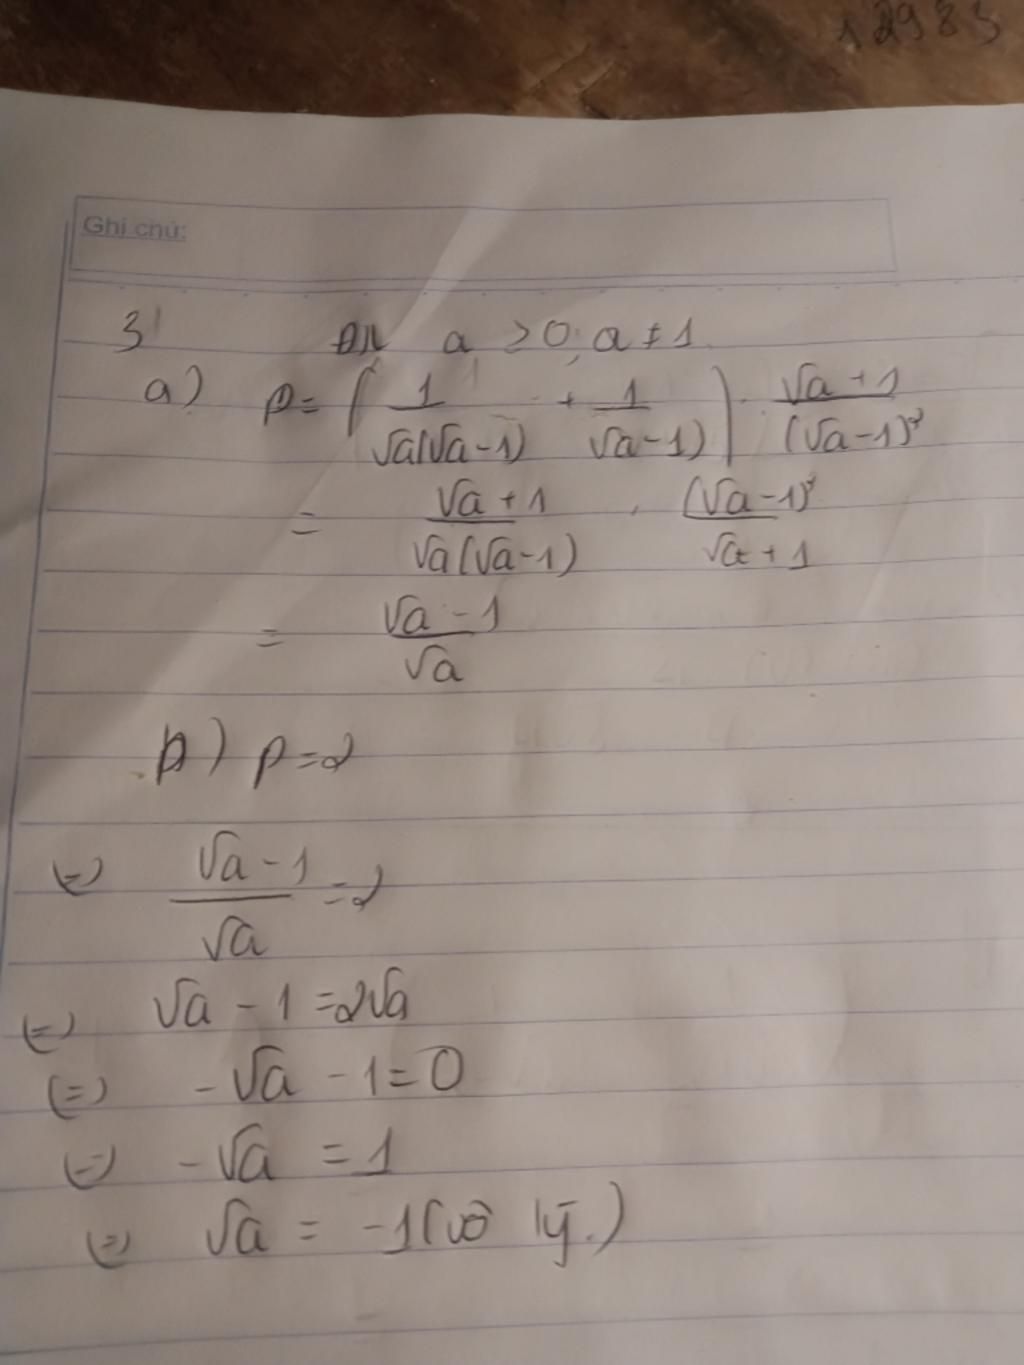 12983
Ghi chú:
3
ĐK a > 0; a ≠ 1
a) P = ( 1/(√a(√a-1)) + 1/(√a-1) ) . (√a+1)/(√a-1)²
= (√a+1)/(√a(√a-1)) . (√a-1)²/(√a+1)
= (√a-1)/√a
b) P=2
(=) (√a-1)/√a =2
(=) √a - 1 =2√a
(=) -√a - 1=0
(=) -√a = 1
(=) √a = -1 (vô lý.)